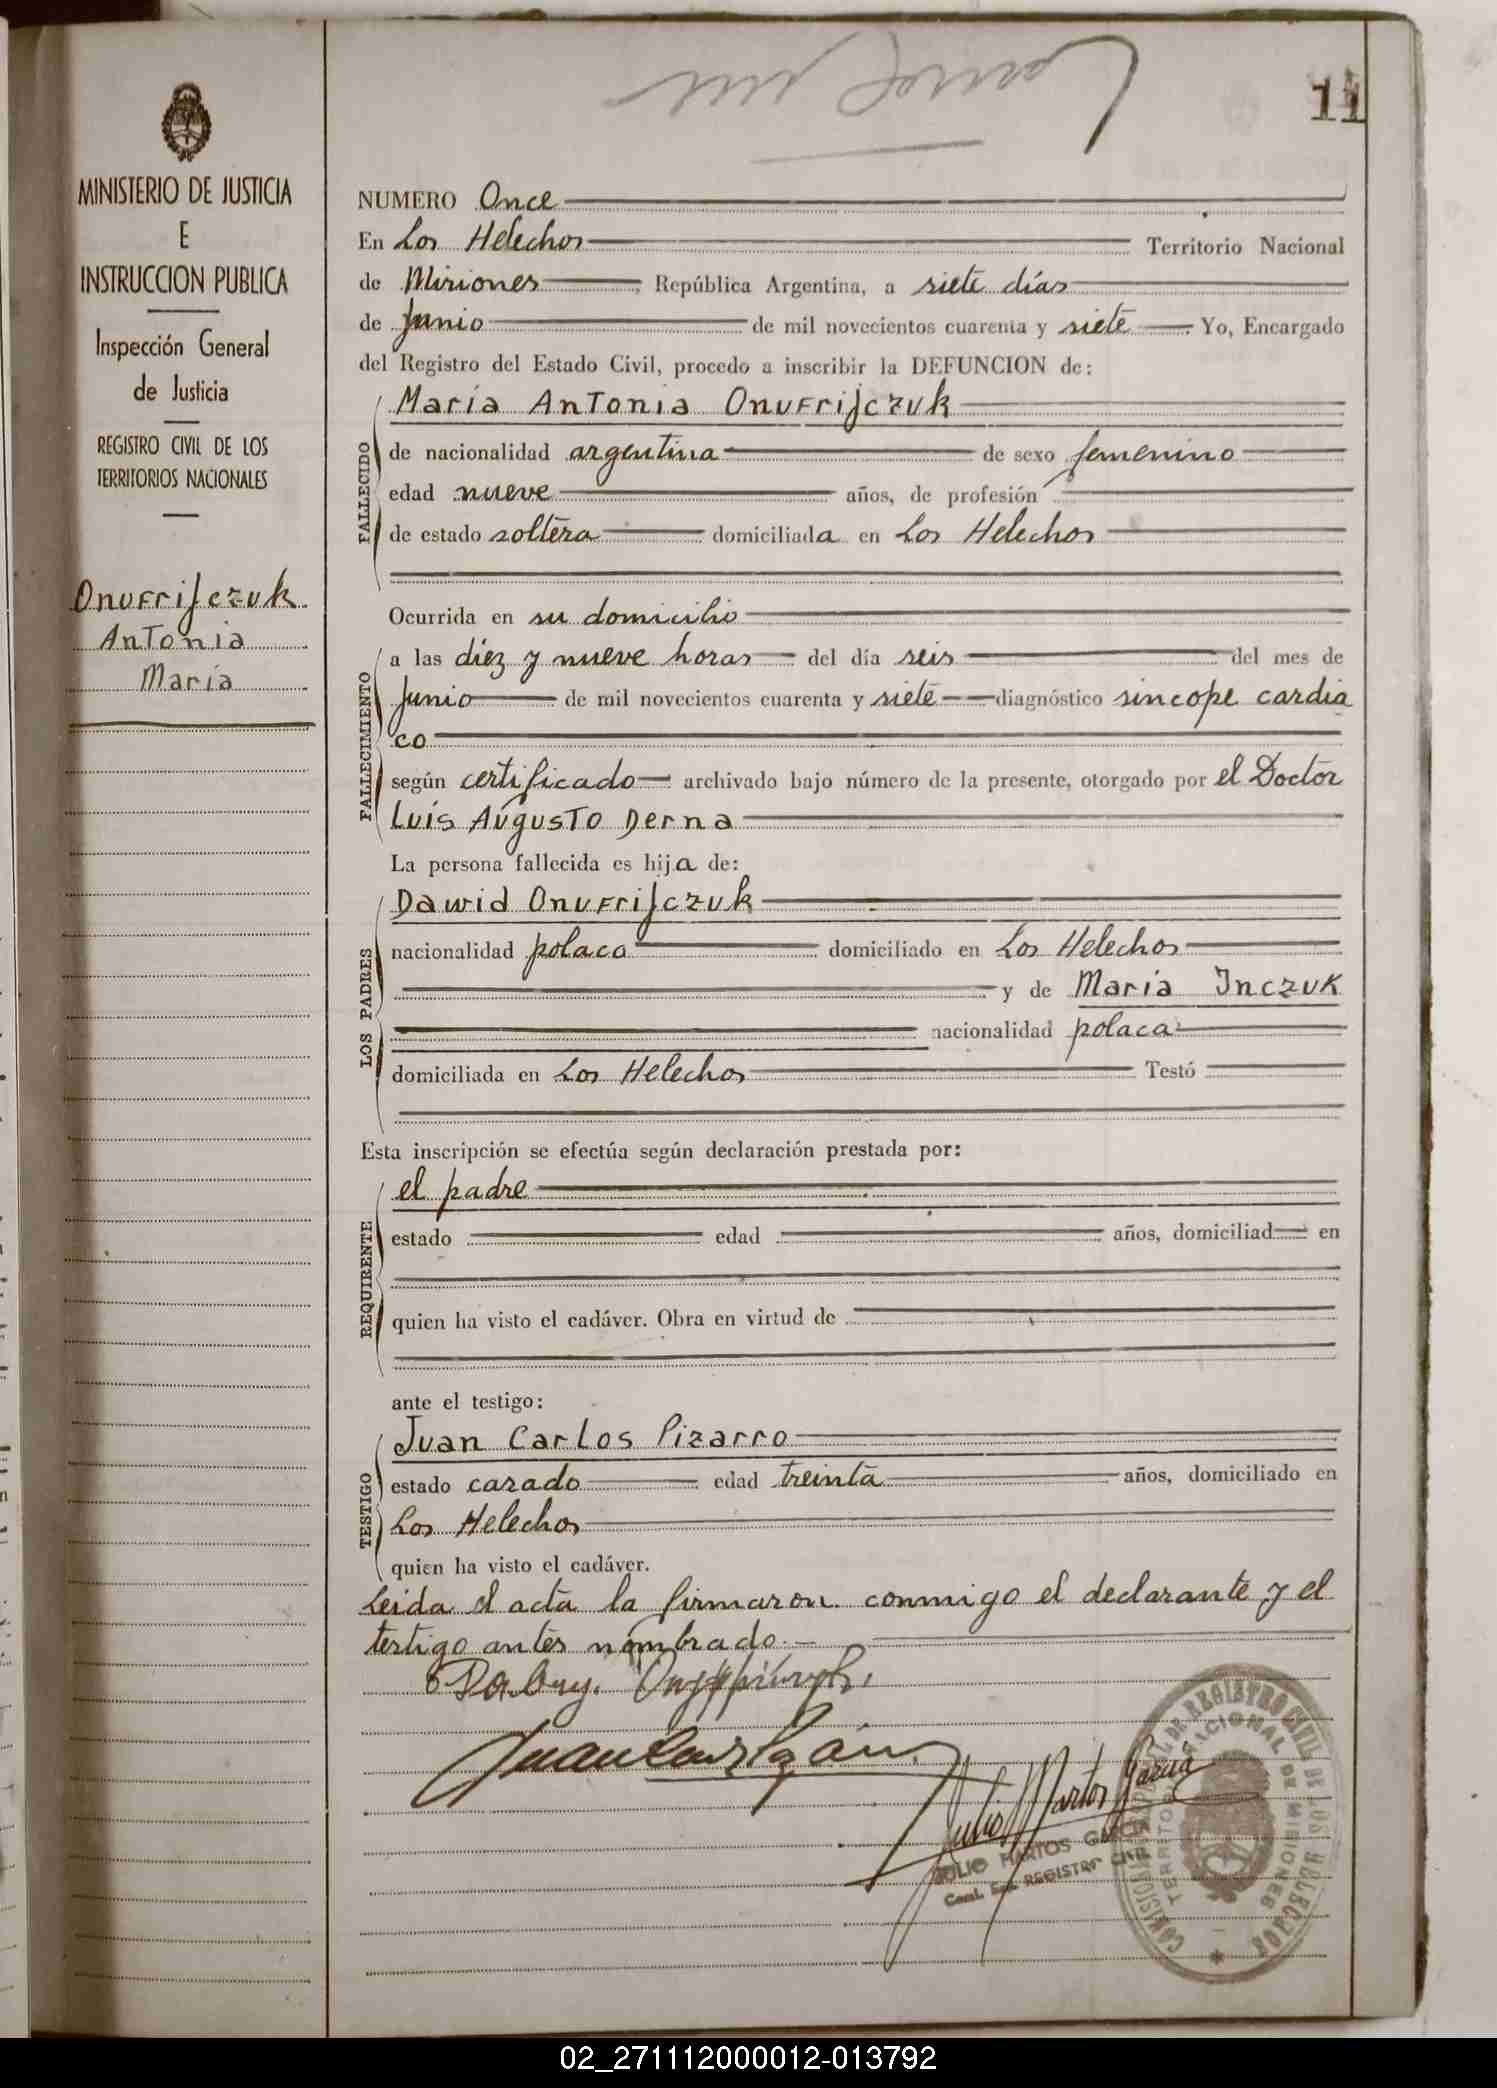 11
MINISTERIO DE JUSTICIA
E
INSTRUCCION PUBLICA
Inspección General
de Justicia
REGISTRO CIVIL DE LOS
TERRITORIOS NACIONALES
Onufrijczuk
Antonia
María
NUMERO Once
En Los Helechos Territorio Nacional
de Misiones, República Argentina, a siete días
de Junio de mil novecientos cuarenta y siete Yo, Encargado
del Registro del Estado Civil, procedo a inscribir la DEFUNCION de:
FALLECIDO
María Antonia Onufrijczuk
de nacionalidad argentina de sexo femenino
edad nueve años, de profesión
de estado soltera domiciliada en Los Helechos
FALLECIMIENTO
Ocurrida en su domicilio
a las diez y nueve horas del día seis del mes de
Junio de mil novecientos cuarenta y siete diagnóstico sincope cardia
co
según certificado archivado bajo número de la presente, otorgado por el Doctor
Luis Augusto Derna
La persona fallecida es hija de:
LOS PADRES
Dawid Onufrijczuk
nacionalidad polaca domiciliado en Los Helechos
y de María Inczuk
nacionalidad polaca
domiciliada en Los Helechos Testó
Esta inscripción se efectúa según declaración prestada por:
REQUIRENTE
el padre
estado edad años, domiciliad en
quien ha visto el cadáver. Obra en virtud de
ante el testigo:
TESTIGO
Juan Carlos Pizarro
estado casado edad treinta años, domiciliado en
Los Helechos
quien ha visto el cadáver.
Leida el acta la firmaron conmigo el declarante y el
testigo antes nombrado.
Julio Martos García
JULIO MARTOS GARCIA
REGISTRO CIVIL
REGISTRO CIVIL DE LOS HELECHOS
TERRITORIO NACIONAL DE MISIONES
02_271112000012-013792